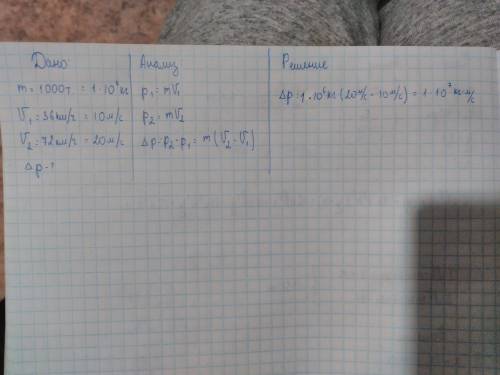 Дано:
m = 1000т. = 1·10⁶кг
V₁ = 36км/ч = 10м/с
V₂ = 72км/ч = 20м/с
Δp - ?
Анализ
p₁ = mV₁
p₂ = mV₂
Δp = p₂ - p₁ = m(V₂ - V₁)
Решение
Δp = 1·10⁶кг (20м/с - 10м/с) = 1·10⁷кг·м/с